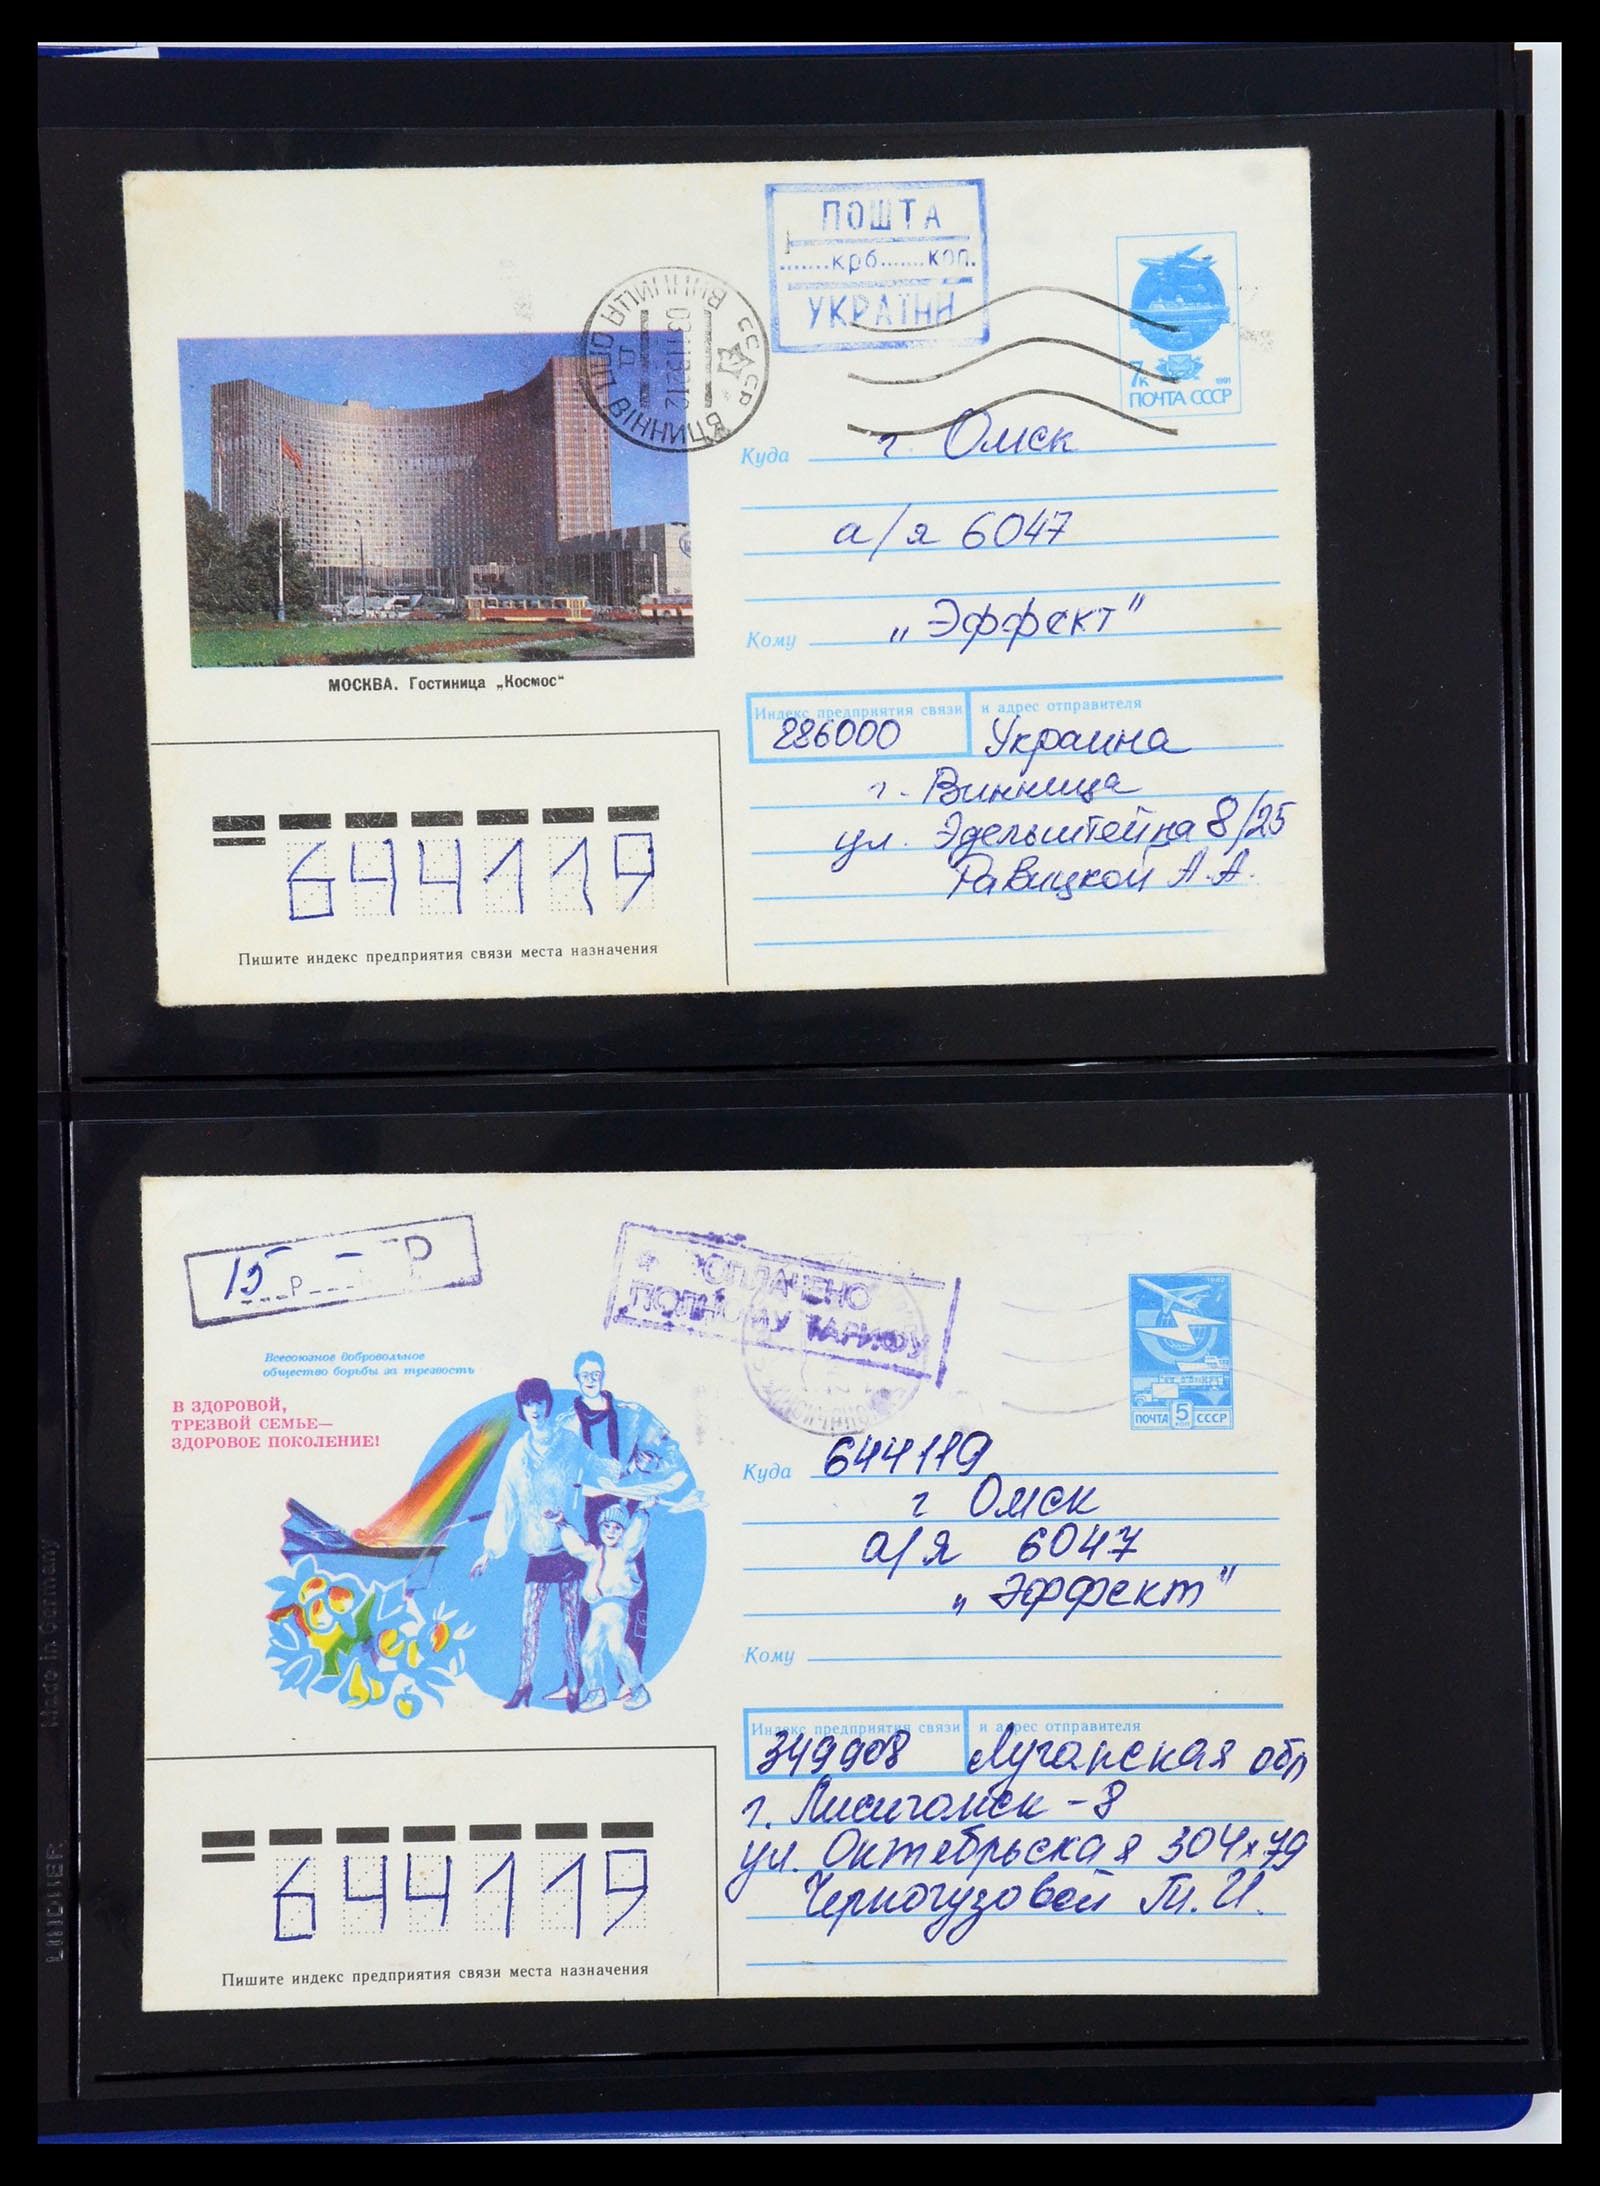 ПОШТА
крб. коп.
УКРАЇНИ
ВІННИЦЯ ПШО
СССР
7к
1991
ПОЧТА СССР
Куда г. Омск
а/я 6047
Кому „Эффект"
МОСКВА. Гостиница „Космос"
Индекс предприятия связи и адрес отправителя
286000 Украина
г. Винница
ул. Эдельштейна 8/25
Равицкой А. А.
644119
Пишите индекс предприятия связи места назначения
15 р. Р
ОПЛАЧЕНО
ПОЛНОМУ ТАРИФУ
1982
ПОЧТА 5 КОП СССР
Всесоюзное добровольное
общество борьбы за трезвость
В ЗДОРОВОЙ,
ТРЕЗВОЙ СЕМЬЕ—
ЗДОРОВОЕ ПОКОЛЕНИЕ!
Куда 644119
г Омск
а/я 6047
„Эффект"
Кому
Индекс предприятия связи и адрес отправителя
349908 Луганская обл
г. Лисичанск - 8
ул. Октябрьская 304 х 79
Черногузовой Т. И.
644119
Пишите индекс предприятия связи места назначения
Made in Germany
LINDNER